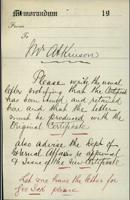 Memorandum 19
From
To
Mr Atkinson
Please write the usual
letter notifying that the Certificate
has been and retained
here and that the letter
must be produced with the
Original Certificate.
also advise the Dept of
External Affairs re approval
& issue of the new Certificate
Let me have the letter for
please